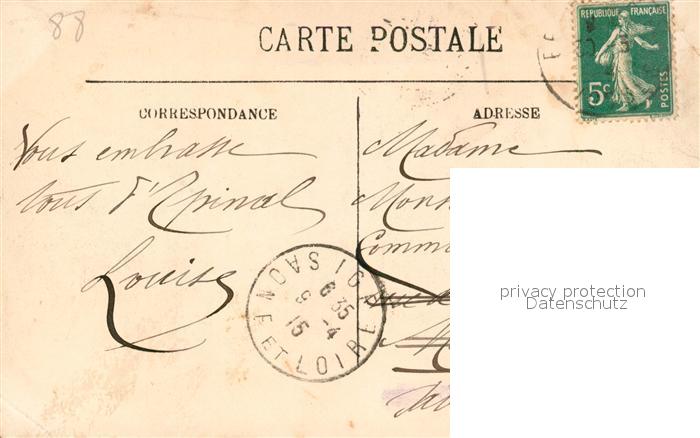 88
CARTE POSTALE
REPUBLIQUE FRANÇAISE
5c
POSTES
CORRESPONDANCE
ADRESSE
Vous embrasse
tous d'Epinal
Louise
Madame
Mons
Comm
SAONE ET LOIRE
6 35
9 -4
15
privacy protection
Datenschutz